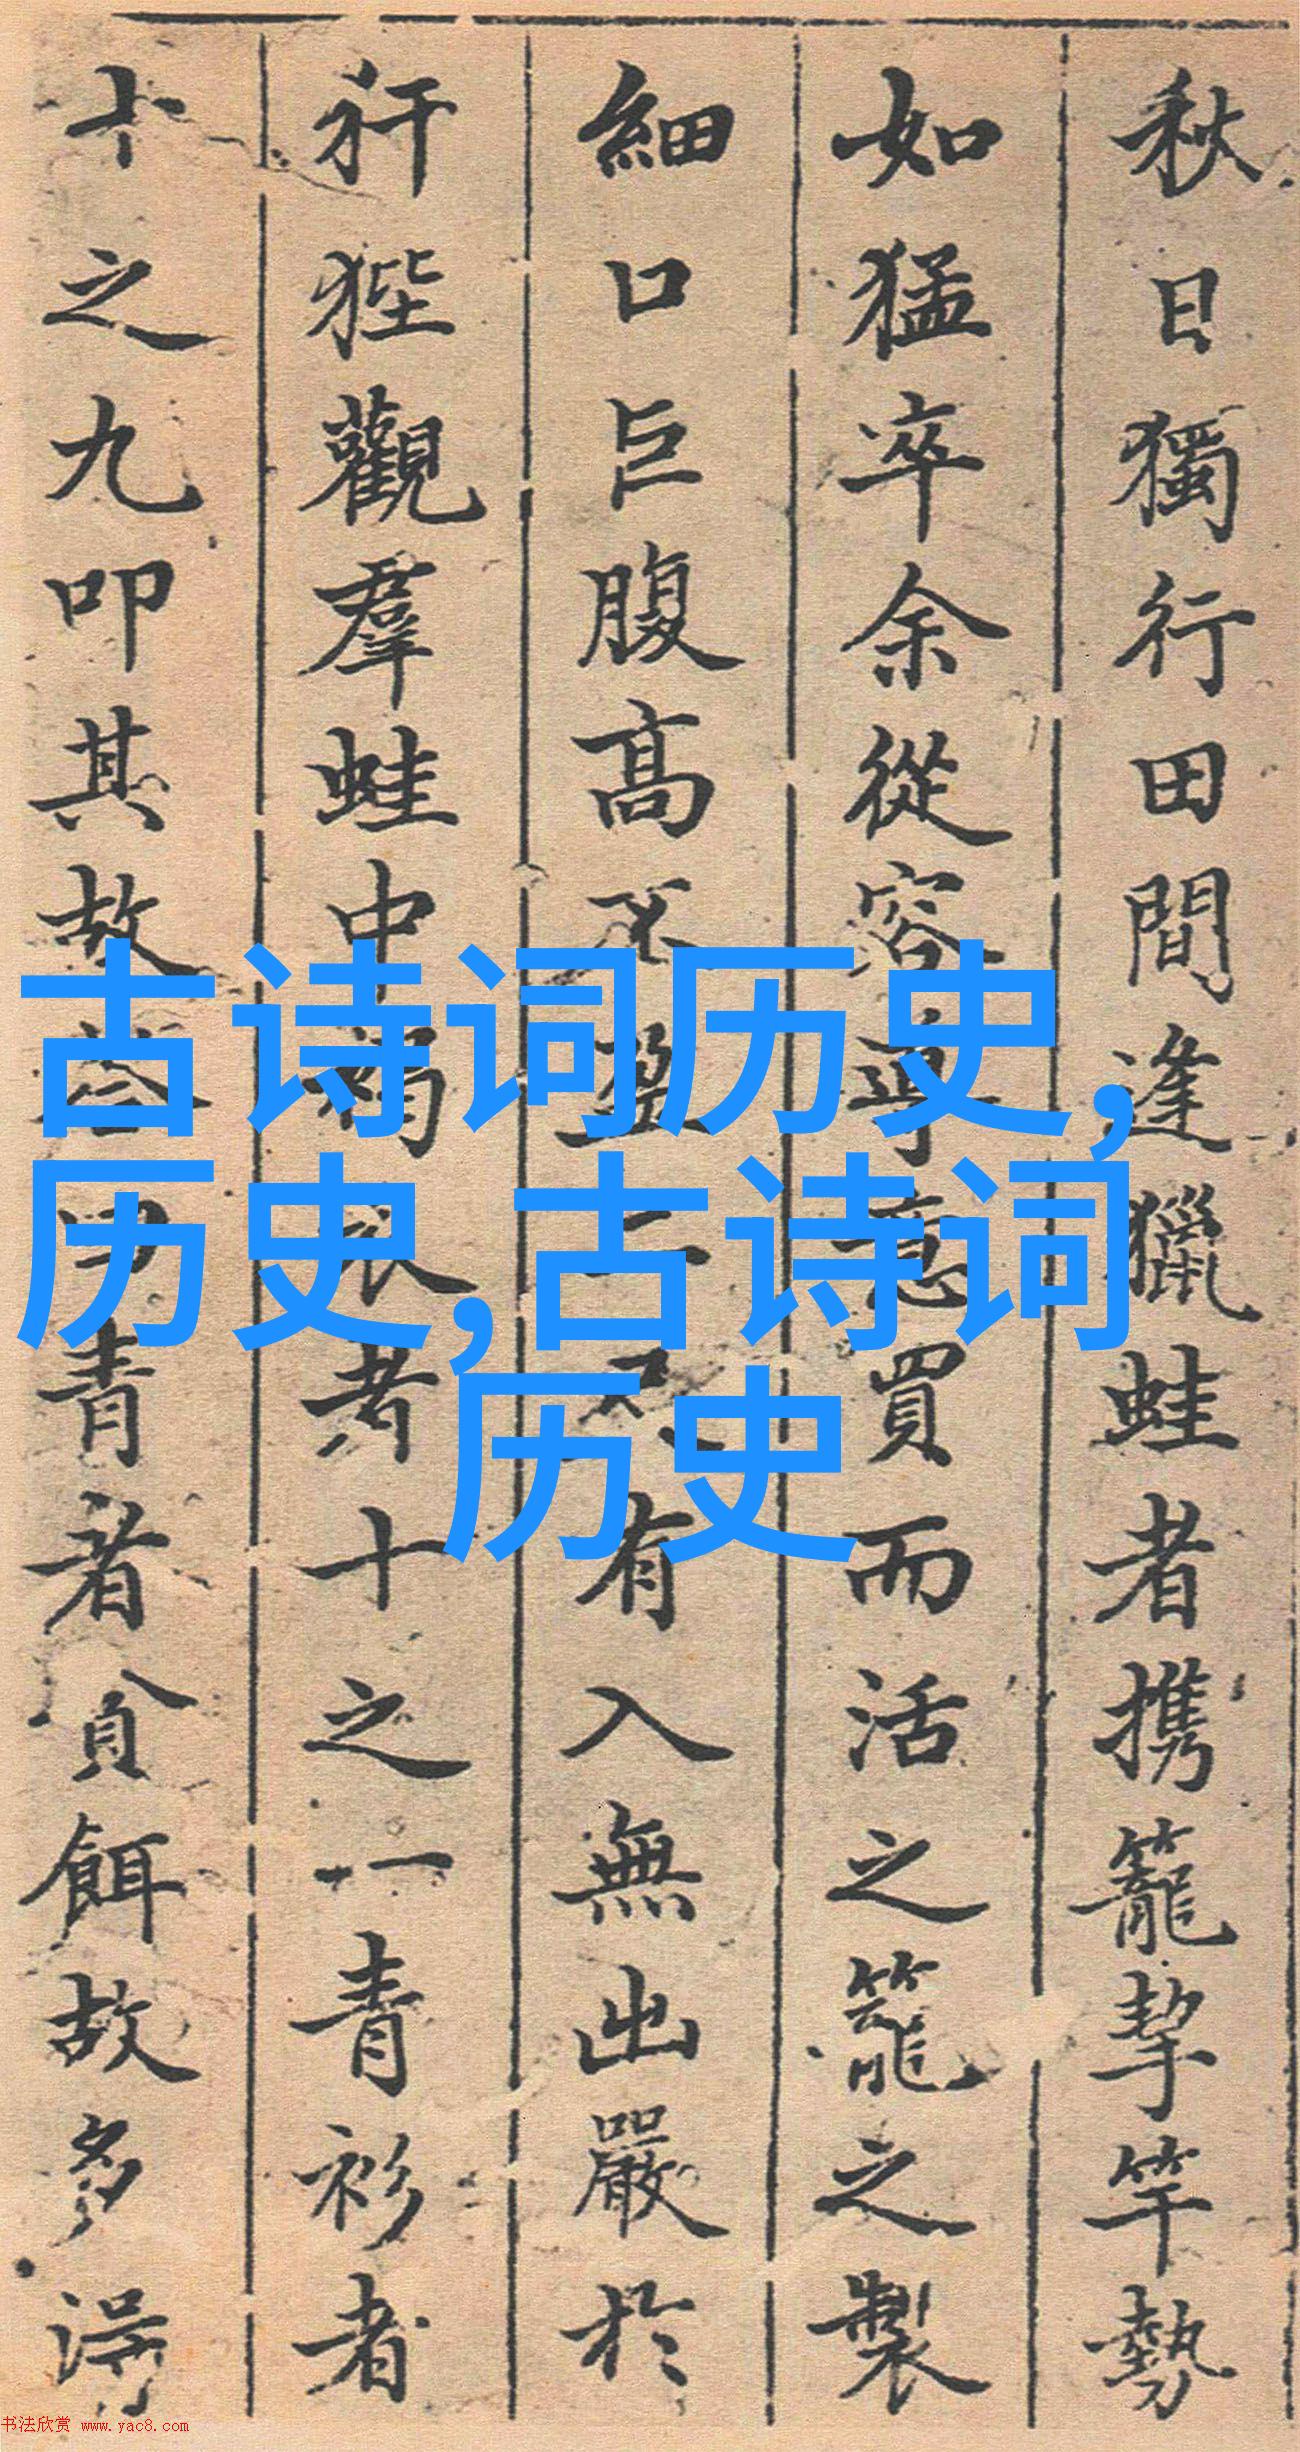 秋日獨行田間逢獵蛙者携籠挈竿勢
如猛卒余從容尋意買而活之籠之製
細口巨腹高不盈二尺有入無出嚴於
犴狴觀羣蛙中褐衣者十之一青衫者
十之九叩其故 曰青者貪餌故多得
古诗词历史,
历史,古诗词
历史
书法欣赏 www.yac8.com